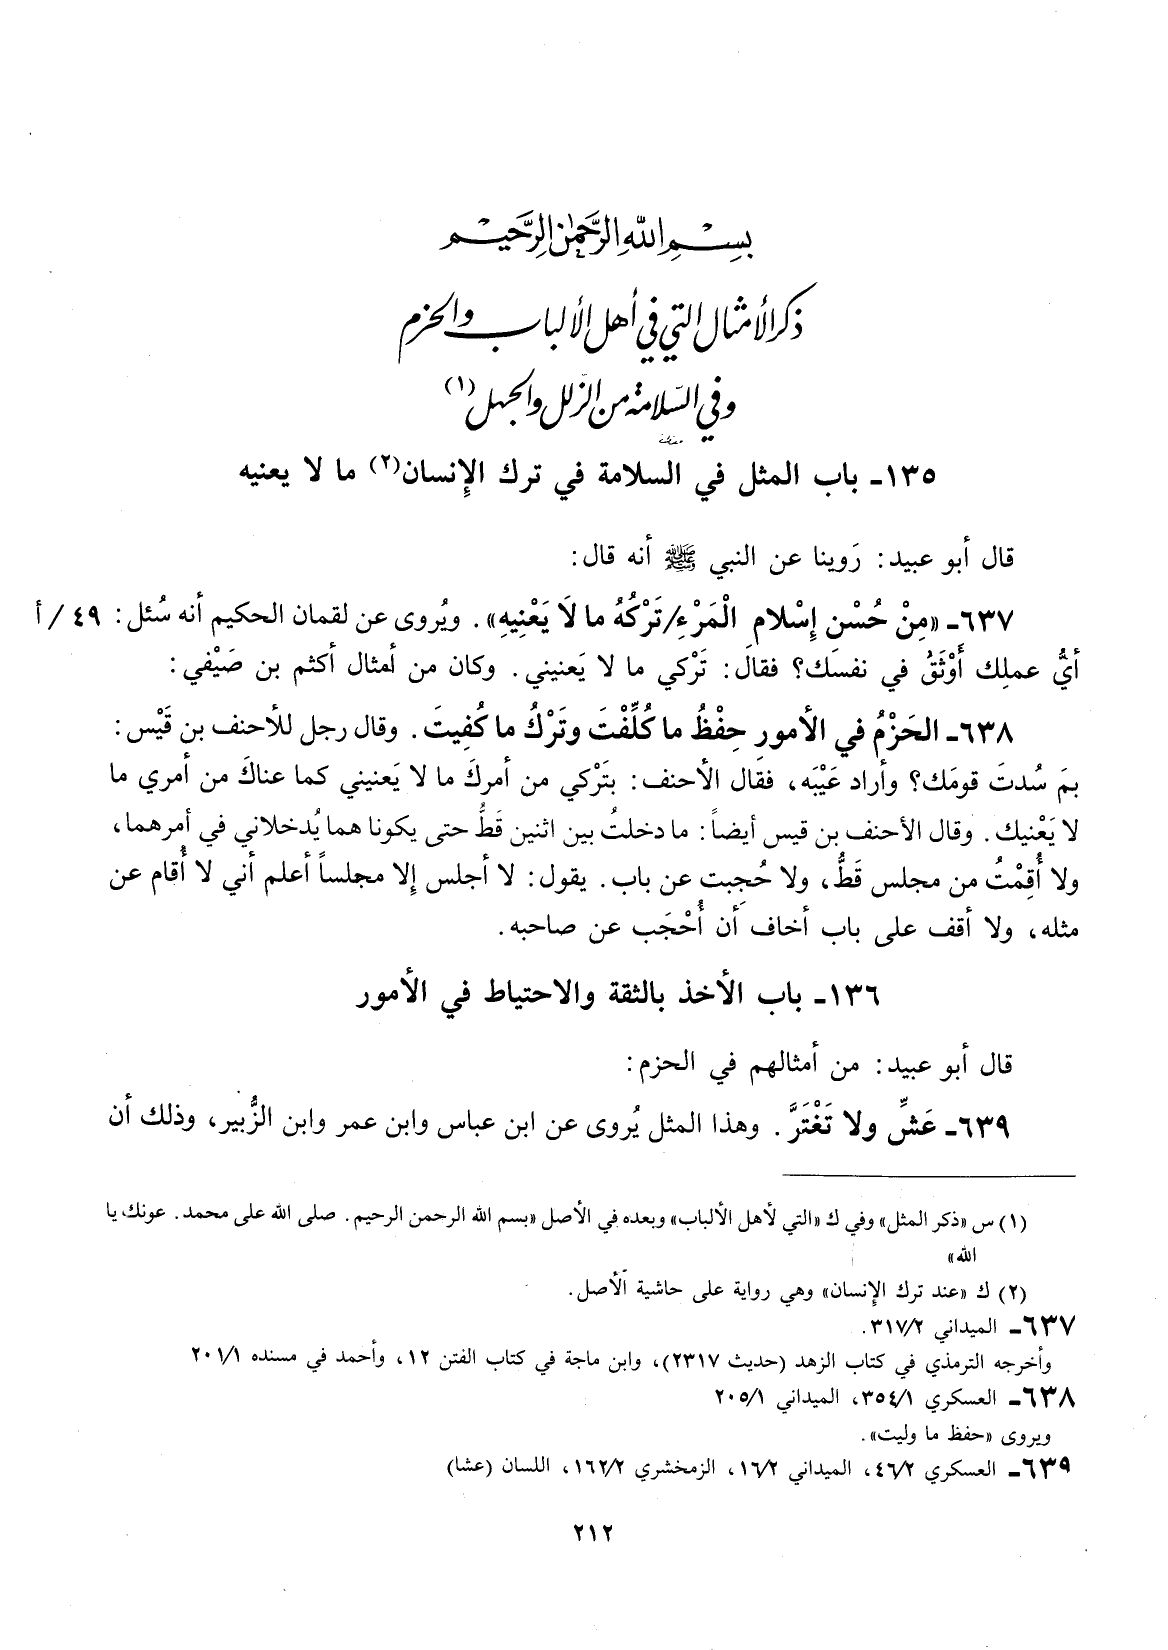 بسم الله الرحمن الرحيم
ذكر الأمثال التي في أهل الألباب والحزم
وفي السلامة من الزلل والجهل (١)
١٣٥ـ باب المثل في السلامة في ترك الإنسان(٢) ما لا يعنيه
قال أبو عبيد: رَوينا عن النبي ﷺ أنه قال:
٦٣٧ـ «مِنْ حُسْن إِسْلامِ الْمَرْءِ/تَرْكُهُ ما لاَ يَعْنِيهِ». ويُروى عن لقمان الحكيم أنه سُئل: ٤٩ / أ
أيُّ عملِك أَوْثَقُ في نفسَك؟ فقال: تَرْكي ما لا يَعنيني. وكان من أمثال أكثم بن صَيْفي:
٦٣٨ـ الحَزْمُ في الأمورِ حِفْظُ ما كُلِّفْتَ وتَرْكُ ما كُفِيتَ. وقال رجل للأحنف بن قَيْس:
بمَ سُدتَ قومَك؟ وأراد عَيْبَه، فقال الأحنف: بتَرْكي من أمركَ ما لا يَعنيني كما عناكَ من أمري ما
لا يَعْنيك. وقال الأحنف بن قيس أيضاً: ما دخلتُ بين اثنين قطُّ حتى يكونا هما يُدخلاني في أمرهما،
ولا أُقِمْتُ من مجلس قَطُّ، ولا حُجِبت عن باب. يقول: لا أجلس إلا مجلساً أعلم أني لا أُقام عن
مثله، ولا أقف على باب أخاف أن أُحْجَب عن صاحبه.
١٣٦ـ باب الأخذ بالثقة والاحتياط في الأمور
قال أبو عبيد: من أمثالهم في الحزم:
٦٣٩ـ عَشِّ ولا تَغْتَرَّ. وهذا المثل يُروى عن ابن عباس وابن عمر وابن الزُّبير، وذلك أن
(١) س «ذكر المثل» وفي ك «التي لأهل الألباب» وبعده في الأصل «بسم الله الرحمن الرحيم. صلى الله على محمد. عونك يا
الله»
(٢) ك «عند ترك الإنسان» وهي رواية على حاشية الأصل.
٦٣٧ـ الميداني ٣١٧/٢.
وأخرجه الترمذي في كتاب الزهد (حديث ٢٣١٧)، وابن ماجة في كتاب الفتن ١٢، وأحمد في مسنده ٢٠١/١
٦٣٨ـ العسكري ٣٥٤/١، الميداني ٢٠٥/١
ويروى «حفظ ما وليت».
٦٣٩ـ العسكري ٤٦/٢، الميداني ١٦/٢، الزمخشري ١٦٢/٢، اللسان (عشا)
٢١٢